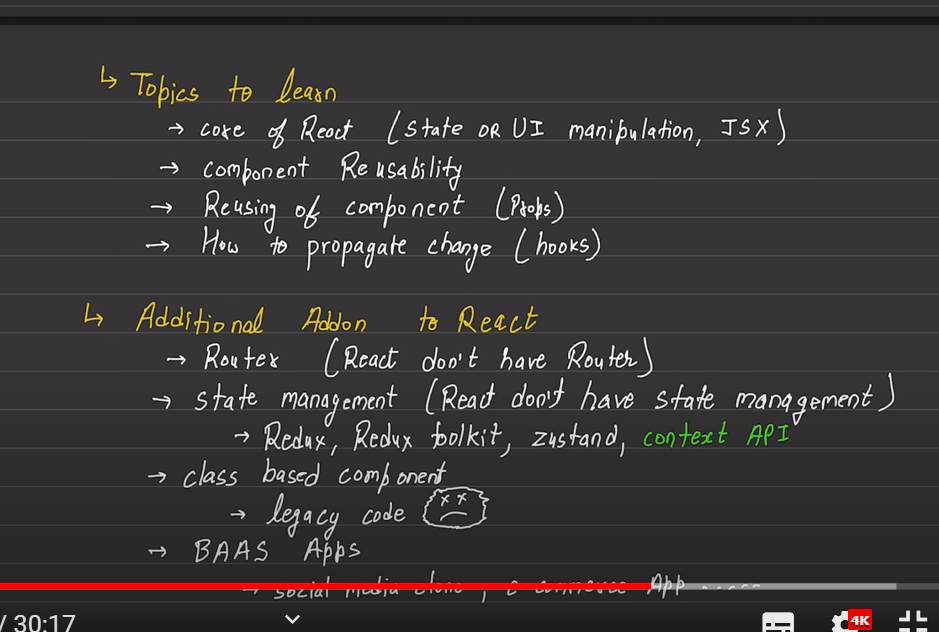 ↳ Topics to learn
→ core of React (state OR UI manipulation, JSX)
→ component Reusability
→ Reusing of component (Props)
→ How to propagate change (hooks)
↳ Additional Addon to React
→ Router (React don't have Router)
→ state management (React don't have state management)
→ Redux, Redux toolkit, zustand, context API
→ class based component
→ legacy code
→ BAAS Apps
→ social media clone, e commerce App
/ 30:17
4K